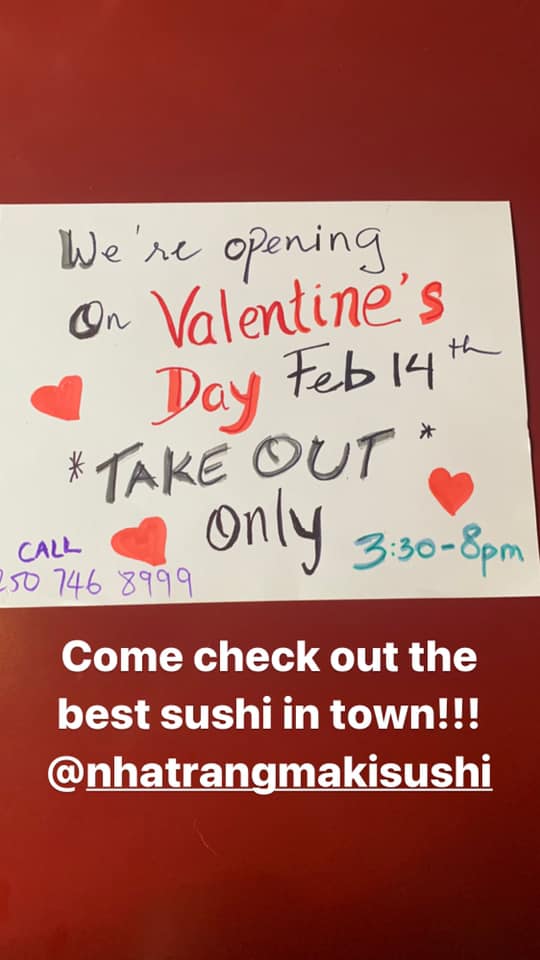 We're opening
On Valentine's
Day Feb 14th
*TAKE OUT*
Only
CALL
250 746 8999
3:30-8pm
Come check out the
best sushi in town!!!
@nhatrangmakisushi